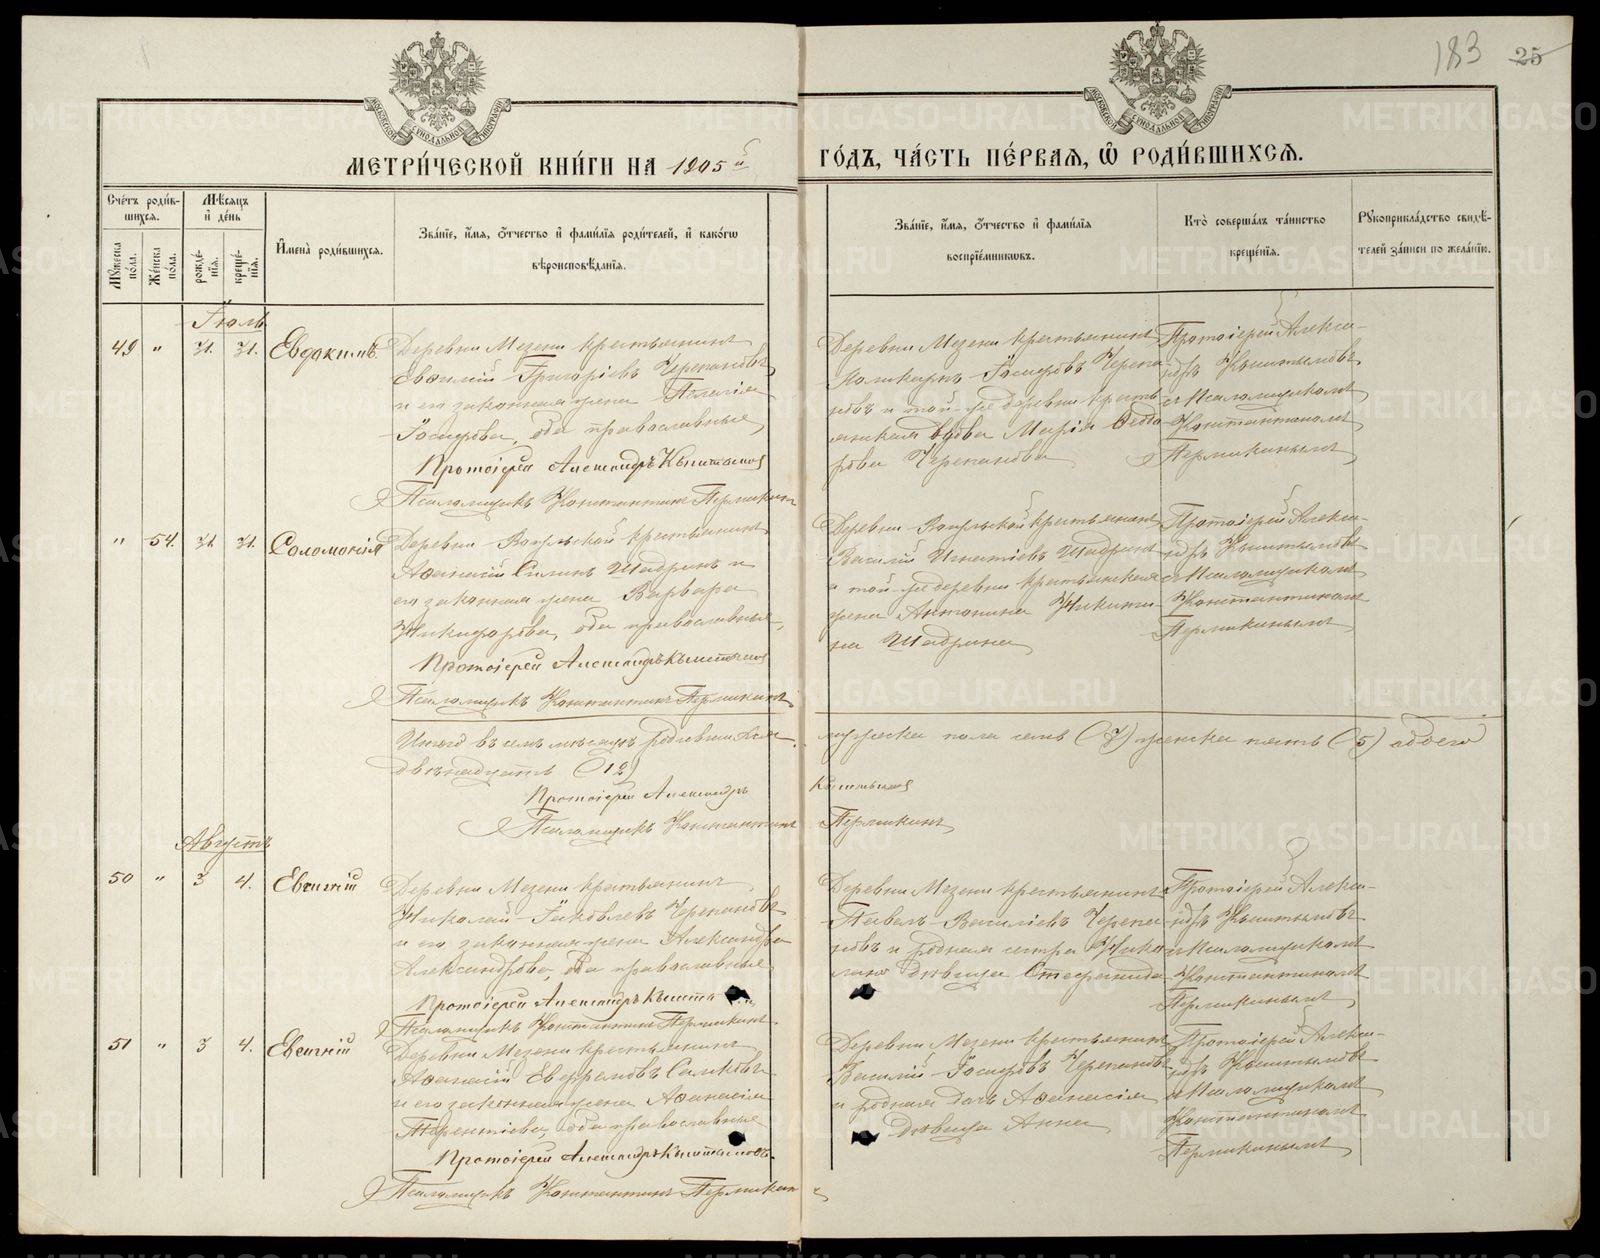 183 25
МЕТРИ́ЧЕСКОЙ КНИ́ГИ НА 1905й ГО́ДЪ, ЧА́СТЬ ПЕ́РВАЯ, Ѿ РОДИ́ВШИХСЯ.
Сче́тъ роди́в-
шихся.
Му́жеска по́ла.
Же́нска по́ла.
Мѣ́сяцъ
и де́нь
рожде́-
нїя.
креще́-
нїя.
И҆мена̀ роди́вшихся.
Зва́нїе, и҆́мя, ѻ҆́тчество и҆ фами́лїя роди́телей, и҆ како́гѡ
вѣроисповѣ́данїя.
Зва́нїе, и҆́мя, ѻ҆́тчество и҆ фами́лїя
воспрїе́мникѡвъ.
Кто̀ соверша́лъ та́инство
креще́нїя.
Рꙋкоприкла́дство свидѣ́-
телей за́писи по жела́нїю.
Іюль
49 " 31. 31. Евдокимъ
Деревни Мезени крестьянинъ
Василій Григоріевъ Черепановъ
и его законная жена Пелагія
Іосифова, оба православные
Протоіерей Александръ Кыштымов
Псаломщикъ Константинъ Пермикин
Деревни Мезени крестьянинъ
Поликарпъ Іосифовъ Черепа-
новъ и той-же деревни кресть-
янская вдова Марія Федо-
рова Черепанова
Протоіерей Алекса-
ндръ Кыштымовъ
съ Псаломщикомъ
Константиномъ
Пермикинымъ
" 54. 31. 31. Соломонія
Деревни крестьянинъ
Афанасій Силинъ Шадринъ и
его законная жена Варвара
Никифорова, оба православные,
Протоіерей Александръ Кыштымов
Псаломщикъ Константинъ Пермикинъ
Деревни крестьянинъ
Василій Игнатіевъ Шадринъ
и той-же деревни крестьянская
жена Антонина Никити-
на Шадрина
Протоіерей Алекса-
ндръ Кыштымовъ
съ Псаломщикомъ
Константиномъ
Пермикинымъ
Итого въ семъ мѣсяцѣ родившихся мужеска пола семь (7) женска пять (5) обоего
двѣнадцать (12)
Протоіерей Александръ Кыштымов
Псаломщикъ Константинъ Пермикинъ
Августъ
50 " 3 4. Евсигній
Деревни Мезени крестьянинъ
Николай Іаковлевъ Черепановъ
и его законная жена Александра
Александрова, оба православные
Протоіерей Александръ Кышты
Псаломщикъ Константинъ Пермикинъ
Деревни Мезени крестьянинъ
Павелъ Василіевъ Черепа-
новъ и родная сестра Нико-
лаю дѣвица Стефанида
Протоіерей Алекса-
ндръ Кыштымовъ
съ Псаломщикомъ
Константиномъ
Пермикинымъ
51 " 3 4. Евсигній
Деревни Мезени крестьянинъ
Афанасій Евфремовъ Салковъ
и его законная жена Афанасія
Терентіева, оба православные
Протоіерей Александръ Кыштымовъ
Псаломщикъ Константинъ Пермикин
Деревни Мезени крестьянинъ
Василій Іосифовъ Черепановъ
и родная дочь Афанасія
дѣвица Анна
Протоіерей Алекса-
ндръ Кыштымовъ
съ Псаломщикомъ
Константиномъ
Пермикинымъ
METRIKI.GASO-URAL.RU